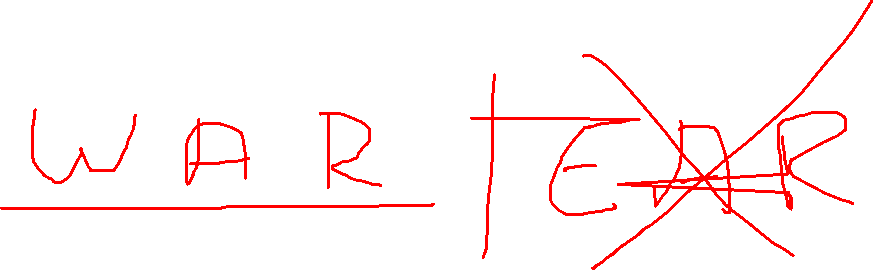 WAR TEAR